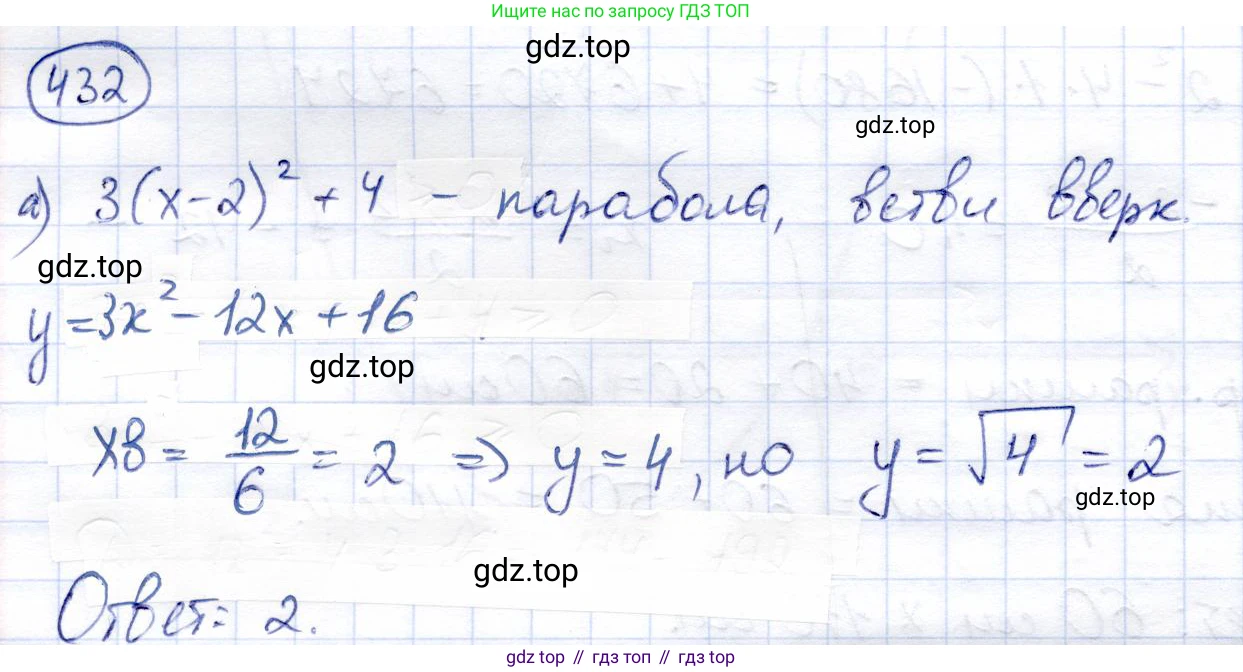 Ищите нас по запросу ГДЗ ТОП
gdz.top
432
gdz.top
а) 3(x-2)² + 4 - парабола, ветви вверх.
gdz.top
y=3x²-12x+16
gdz.top
xв = 12/6 = 2 => y = 4, но y = √4 = 2
gdz.top
gdz.top
Ответ: 2.
gdz.top // гдз топ // gdz top